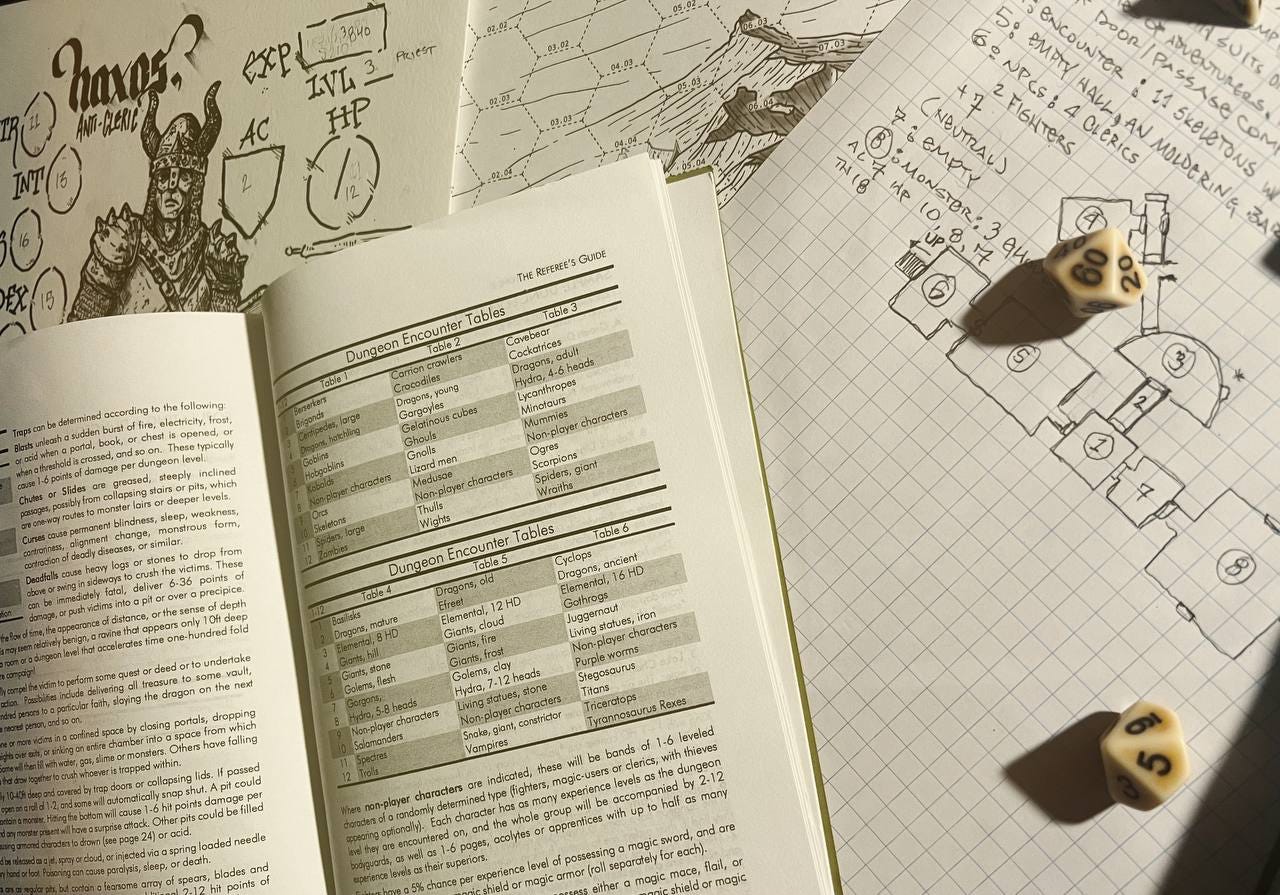 naxos
ANTI-CLERIC
EXP 3840
LVL 3 PRIEST
AC
2
HP
12
STR 11
INT 13
16
DEX 15
02.02
03.02
04.03
05.02
06.03
07.03
02.03
03.03
05.03
06.04
02.04
04.04
05.04
DOOR/PASSAGE
ADVENTURERS,
5: ENCOUNTER: 11 SKELETONS
6: EMPTY HALL, AN MOLDERING
NPCS: 4 CLERICS
2 FIGHTERS
+7
(NEUTRAL)
7: EMPTY
8: MONSTER: 3
AC 7 HP 10, 8, 7
TN 18
UP
4
6
5
3
2
1
7
8
60
20
5
3
Traps can be determined according to the following:
Blasts unleash a sudden burst of fire, electricity, frost,
or acid when a portal, book, or chest is opened, or
when a threshold is crossed, and so on. These typically
cause 1-6 points of damage per dungeon level.
Chutes or Slides are greased, steeply inclined
passages, possibly from collapsing stairs or pits, which
are one-way routes to monster lairs or deeper levels.
Curses cause permanent blindness, sleep, weakness,
contrariness, alignment change, monstrous form,
contraction of deadly diseases, or similar.
Deadfalls cause heavy logs or stones to drop from
above or swing in sideways to crush the victims. These
can be immediately fatal, deliver 6-36 points of
damage, or push victims into a pit or over a precipice.
the flow of time, the appearance of distance, or the sense of depth
may seem relatively benign, a ravine that appears only 10ft deep
a room or a dungeon level that accelerates time one-hundred fold
campaign!
compel the victim to perform some quest or deed or to undertake
action. Possibilities include delivering all treasure to some vault,
hundred persons to a particular faith, slaying the dragon on the next
nearest person, and so on.
one or more victims in a confined space by closing portals, dropping
weights over exits, or sinking an entire chamber into a space from which
Some will then fill with water, gas, slime or monsters. Others have falling
that draw together to crush whoever is trapped within.
10-40ft deep and covered by trap doors or collapsing lids. If passed
open on a roll of 1-2, and some will automatically snap shut. A pit could
contain a monster. Hitting the bottom will cause 1-6 hit points damage per
and any monster present will have a surprise attack. Other pits could be filled
causing armored characters to drown (see page 24) or acid.
be released as a jet, spray or cloud, or injected via a spring loaded needle
hand or foot. Poisoning can cause paralysis, sleep, or death.
are as regular pits, but contain a fearsome array of spears, blades and
2-12 hit points of
THE REFEREE'S GUIDE
Dungeon Encounter Tables
Table 1 Table 2 Table 3
Berserkers Carrion crawlers Cavebear
Brigands Crocodiles Cockatrices
Centipedes, large Dragons, young Dragons, adult
Dragons, hatchling Gargoyles Hydra, 4-6 heads
Goblins Gelatinous cubes Lycanthropes
Hobgoblins Ghouls Minotaurs
Kobolds Gnolls Mummies
Non-player characters Lizard men Non-player characters
Orcs Medusae Ogres
10 Skeletons Non-player characters Scorpions
11 Spiders, large Thulls Spiders, giant
12 Zombies Wights Wraiths
Dungeon Encounter Tables
1-12 Table 4 Table 5 Table 6
Basilisks Dragons, old Cyclops
2 Dragons, mature Efreet Dragons, ancient
3 Elemental, 8 HD Elemental, 12 HD Elemental, 16 HD
4 Giants, hill Giants, cloud Gothrogs
5 Giants, stone Giants, fire Juggernaut
6 Golems, flesh Giants, frost Living statues, iron
7 Gorgons, Golems, clay Non-player characters
8 Hydra, 5-8 heads Hydra, 7-12 heads Purple worms
9 Non-player characters Living statues, stone Stegosaurus
10 Salamanders Non-player characters Titans
11 Spectres Snake, giant, constrictor Triceratops
12 Trolls Vampires Tyrannosaurus Rexes
Where non-player characters are indicated, these will be bands of 1-6 leveled
characters of a randomly determined type (fighters, magic-users or clerics, with thieves
appearing optionally). Each character has as many experience levels as the dungeon
level they are encountered on, and the whole group will be accompanied by 2-12
bodyguards, as well as 1-6 pages, acolytes or apprentices with up to half as many
experience levels as their superiors.
Fighters have a 5% chance per experience level of possessing a magic sword, and are
magic shield or magic armor (roll separately for each).
possess either a magic mace, flail, or
magic shield or magic